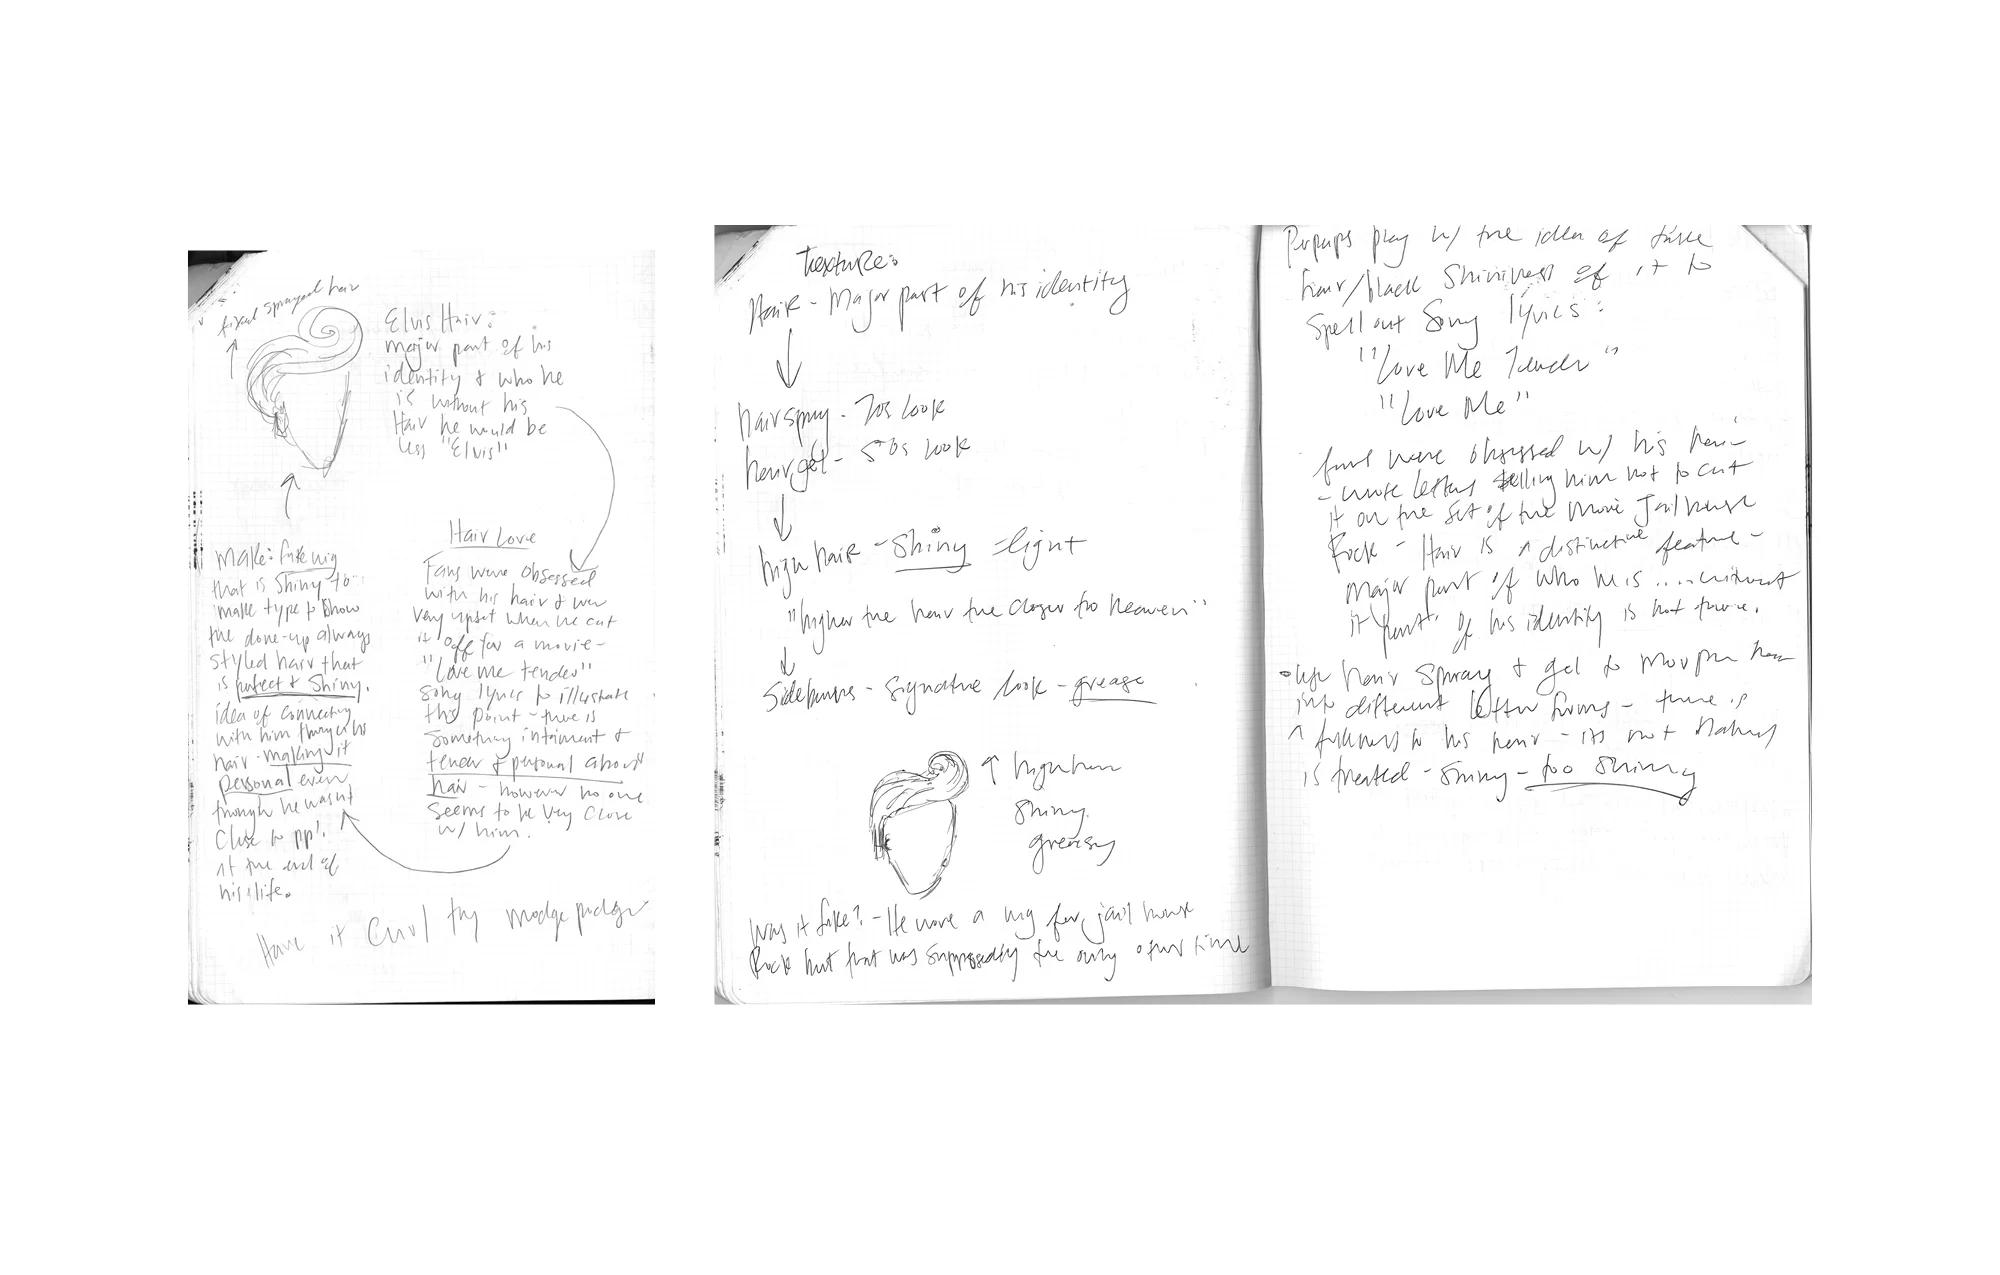 fixed sprayed hair
Elvis Hair:
major part of his
identity & who he
is without his
Hair he would be
less "Elvis"
Hair Love
Fans were obsessed
with his hair & were
very upset when he cut
it off for a movie -
"Love me tender"
song lyrics to illustrate
this point - there is
something intament &
tender & personal about
hair - however no one
seems to be very close
w/ him.
Make: fake wig
that is shiny to
make type to show
the done-up always
styled hair that
is perfect & shiny.
idea of connecting
with him through his
hair - making it
personal even
though he wasn't
close to ppl.
at the end of
his life.
Have it curl try modge podge
texture:
Hair - Major part of his identity
hairspray - 70s look
hair gel - 50s look
high hair - shiny - light
"higher the hair the closer to heaven"
Sideburns - signature look - grease
high hair
shiny
greasy
Was it fake? - He wore a wig for jail house
Rock but that was supposedly the only other time
Perhaps play w/ the idea of fake
hair/black shininess of it to
spell out song lyrics:
"Love Me Tender"
"Love Me"
fans were obsessed w/ his hair
- wrote letters telling him not to cut
it on the set of the movie Jailhouse
Rock - Hair is a distinctive feature -
major part of who he is .... without
it part of his identity is not there.
• use hair spray & gel to morph hair
into different letter forms - there is
a to his hair - its not
is treated - shiny - too shiny